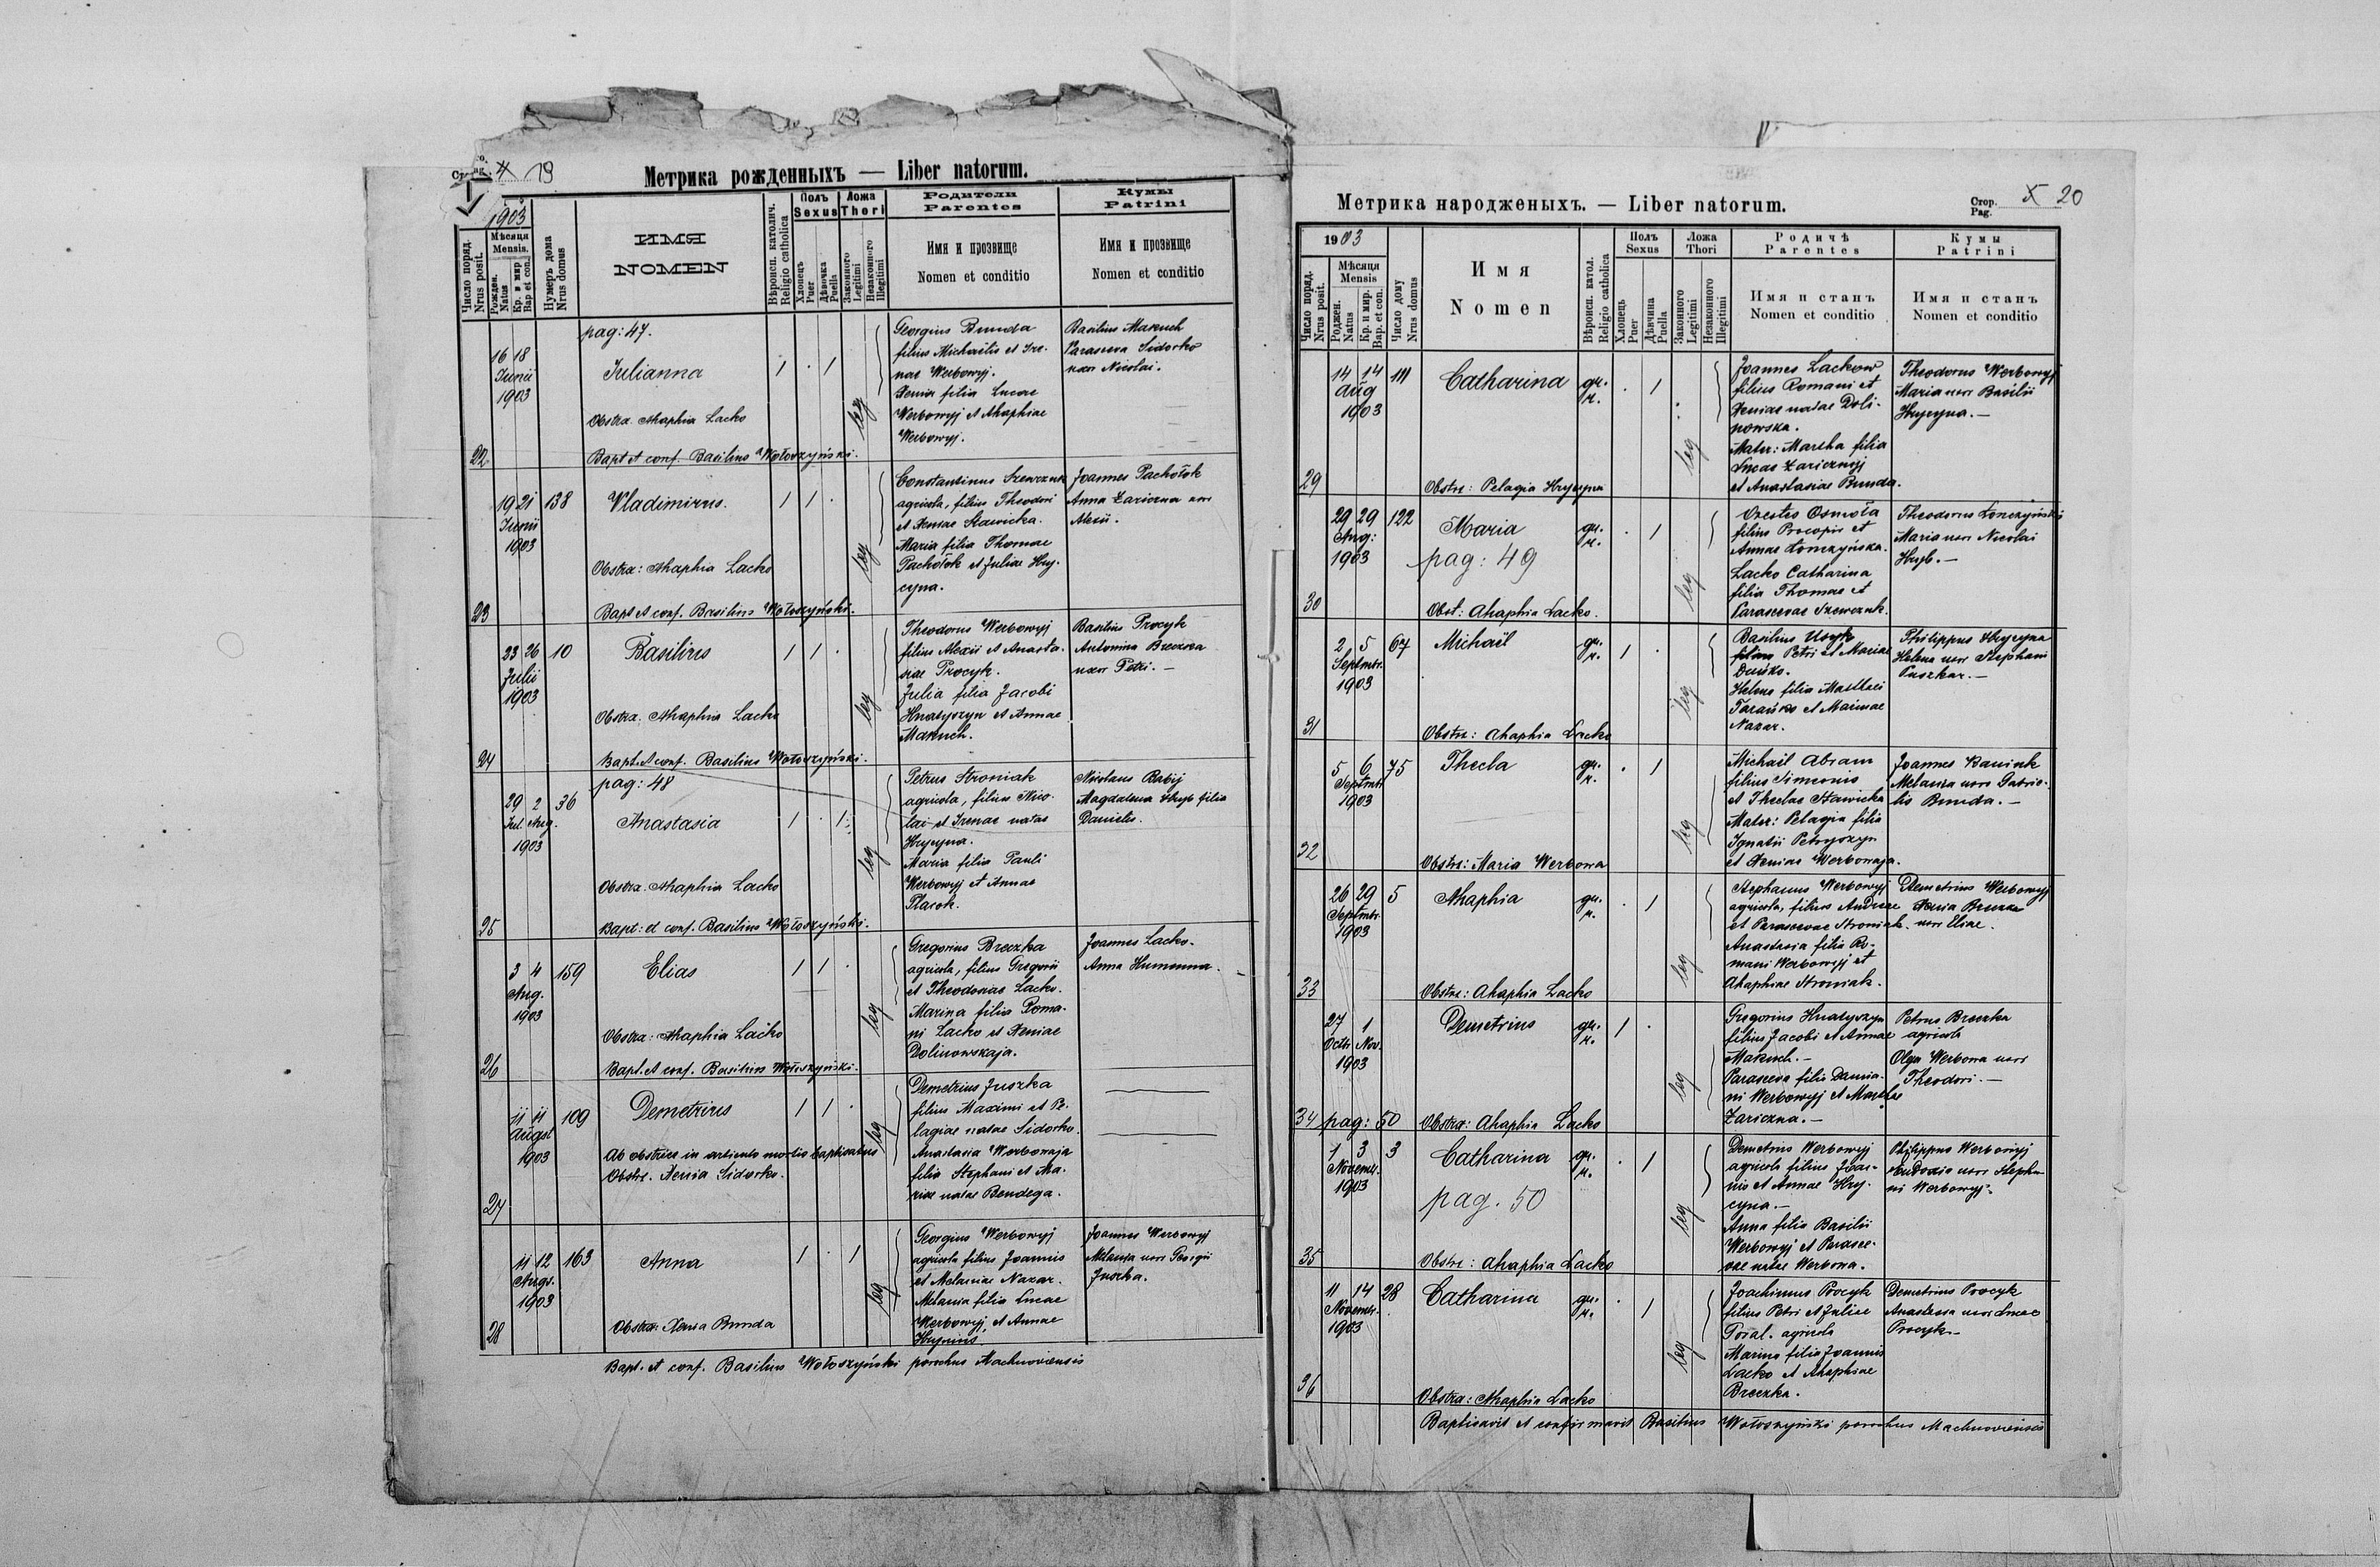 Стр. Pag. 19
Метрика рожденныхъ — Liber natorum.
1903
Число поряд. Nrus posit.
Мѣсяця Mensis.
Рожден. Natus
Кр. и мир. Bap et con.
Нумеръ дома Nrus domus
ИМЯ
NOMEN
Вѣроисп. католич. Religio catholica
Полъ Sexus
Хлопецъ Puer
Дѣвочка Puella
Ложа Thori
Законного Legitimi
Незаконного Illegitimi
Родители
Parentes
Имя и прозвище
Nomen et conditio
Кумы
Patrini
Имя и прозвище
Nomen et conditio
pag: 47.
22
16 18
Junii
1903
Julianna
1 · 1
leg
Obstra. Ahaphia Lacko
Bapt et conf. Basilius Wołoszyński.
Georgius Bunda
filius Michaelis et Ire-
nae Werbowyj.
Xenia filia Lucae
Werbowyj et Ahaphiae
Werbowyj.
Basilius Makuch
Parasceva Sidorko
uxor Nicolai.
23
19 21 138
Junii
1903
Vladimirus.
1 1 ·
leg
Obstra: Ahaphia Lacko
Bapt et conf. Basilius Wołoszyński.
Constantinus Szewczuk
agricola, filius Theodori
et Xeniae Stawicka.
Maria filia Thomae
Pachołok et Juliae Hry-
cyna.
Joannes Pachołok
Anna Zariczna uxor
Alexii.
24
23 26 10
Julii
1903
Basilius
1 1 ·
leg
Obstra. Ahaphia Lacko
Bapt. et conf. Basilius Wołoszyński.
Theodorus Werbowyj
filius Alexii et Anasta-
siae Procyk.
Julia filia Jacobi
Hnatyszyn et Annae
Makuch.
Basilius Procyk
Antonina Breczka
uxor Petri. —
pag: 48
25
29 2 36
Jul. Aug.
1903
Anastasia
1 · 1
leg
Obstra. Ahaphia Lacko
Bapt: et conf. Basilius Wołoszyński.
Petrus Stroniak
agricola, filius Nico-
lai et Irenae natae
Hrycyna.
Maria filia Pauli
Werbowyj et Annae
Nicolaus Babij
Magdalena Hryb filia
Danielis.
26
3 4 159
Aug.
1903
Elias
1 1 ·
leg
Obstra: Ahaphia Lacko
Bapt. et conf. Basilius Wołoszyński.
Gregorius Breczka
agricola, filius Gregorii
et Theodosiae Lacko.
Marina filia Roma-
ni Lacko et Xeniae
Dolinowskaja.
Joannes Lacko.
Anna Humenna.
27
11 11 109
August
1903
Demetrius
1 1 ·
leg
Ab obstrice in articulo mortis baptisatus
Obstr. Xenia Sidorko.
Demetrius Juszka
filius Maximi et Pe-
lagiae natae Sidorko.
Anastasia Werbowaja
filia Stephani et Ma-
riae natae Bendega.
28
11 12 163
Augs.
1903
Anna
1 · 1
leg
Obstra: Xenia Bunda
Georgius Werbowyj
agricola filius Joannis
et Melaniae Nazar.
Melania filia Lucae
Werbowyj, et Annae
Joannes Werbowyj
Melania uxor Georgii
Juszka.
Bapt. et conf. Basilius Wołoszyński parochus Machnoviensis
Метрика народженыхъ. — Liber natorum.
Стор. Pag. 20
1903
Число поряд. Nrus posit.
Мѣсяця Mensis
Роджен. Natus
Кр. и мир. Bap. et con.
Число дому Nrus domus
Имя
Nomen
Вѣроисп. катол. Religio catholica
Полъ Sexus
Хлопець Puer
Дѣвчина Puella
Ложа Thori
Законного Legitimi
Незаконного Illegitimi
Родичѣ
Parentes
Имя и станъ
Nomen et conditio
Кумы
Patrini
Имя и станъ
Nomen et conditio
29
14 14 111
Aug
1903
Catharina
gr. · 1
leg
Obstr: Pelagia Hrycyna
Joannes Lackow
filius Romani et
Xeniae natae Doli-
nowska.
Mater: Martha filia
Lucae Zaricznyj
et Anastasiae Bunda.
Theodorus Werbowyj
Maria uxor Basilii
Hrycyna. —
30
29 29 122
Aug:
1903
Maria
pag: 49
gr. · 1
leg
Obst: Ahaphia Lacko.
Orestes Osmoła
filius Procopii et
Annae Łonczyńska.
Lacko Catharina
filia Thomae et
Parascevae Szewczuk.
Theodorus Łonczyński
Maria uxor Nicolai
Hryb. —
31
2 5 67
Septmbr.
1903
Michaël
gr. 1 ·
leg
Obstr: Ahaphia Lacko
Basilius Usyk
filius Petri et Mariae
Duśko.
Helena filia Matthaei
Tarańko et Marinae
Nazar.
Philippus Hrycyna
Helena uxor Stephani
Puszkar. —
32
5 6 75
Septmbr
1903
Thecla
gr. · 1
leg
Obstr: Maria Werbowa
Michail Abram
filius Simeonis
et Theclae Stawicka
Mater: Pelagia filia
Ignatii Petryszyn
et Xeniae Werbowaja.
Joannes Baniuk
Melania uxor Gabrie-
lis Bunda. —
33
26 29 5
Septmbr.
1903
Ahaphia
gr. · 1
leg
Obstr: Ahaphia Lacko
Stephanus Werbowyj
agricola, filius Andreae
et Parascevae Stroniak.
Anastasia filia Ro-
mani Werbowyj et
Ahaphiae Stroniak.
Demetrius Werbowyj
Xenia Breczka
uxor Eliae.
34
27 1
Octb Nov.
1903
Demetrius
gr. 1 ·
leg
pag: 50
Obstra: Ahaphia Lacko
Gregorius Hnatyszyn
filius Jacobi et Annae
Makuch. —
Parasceva filia Damia-
ni Werbowyj et Marthae
Zariczna. —
Petrus Breczka
agricola
Olga Werbowa uxor
Theodori. —
35
1 3 3
Novembr.
1903
Catharina
pag. 50
gr. · 1
leg
Obstr: Ahaphia Lacko
Demetrius Werbowyj
agricola filius Joan-
nis et Annae Hry-
cyna. —
Anna filia Basilii
Werbowyj et Parasce-
vae natae Werbowa.
Philippus Werbowyj
Eudoxia uxor Stepha-
ni Werbowyj.
36
11 14 28
Novembr.
1903
Catharina
gr. · 1
leg
Obstra: Ahaphia Lacko
Joachimus Procyk
filius Petri et Juliae
agricola
Marina filia Joannis
Lacko et Ahaphiae
Breczka.
Demetrius Procyk
Anastasia uxor Lucae
Procyk —
Baptisavit et confirmavit Basilius Wołoszyński parochus Machnoviensis